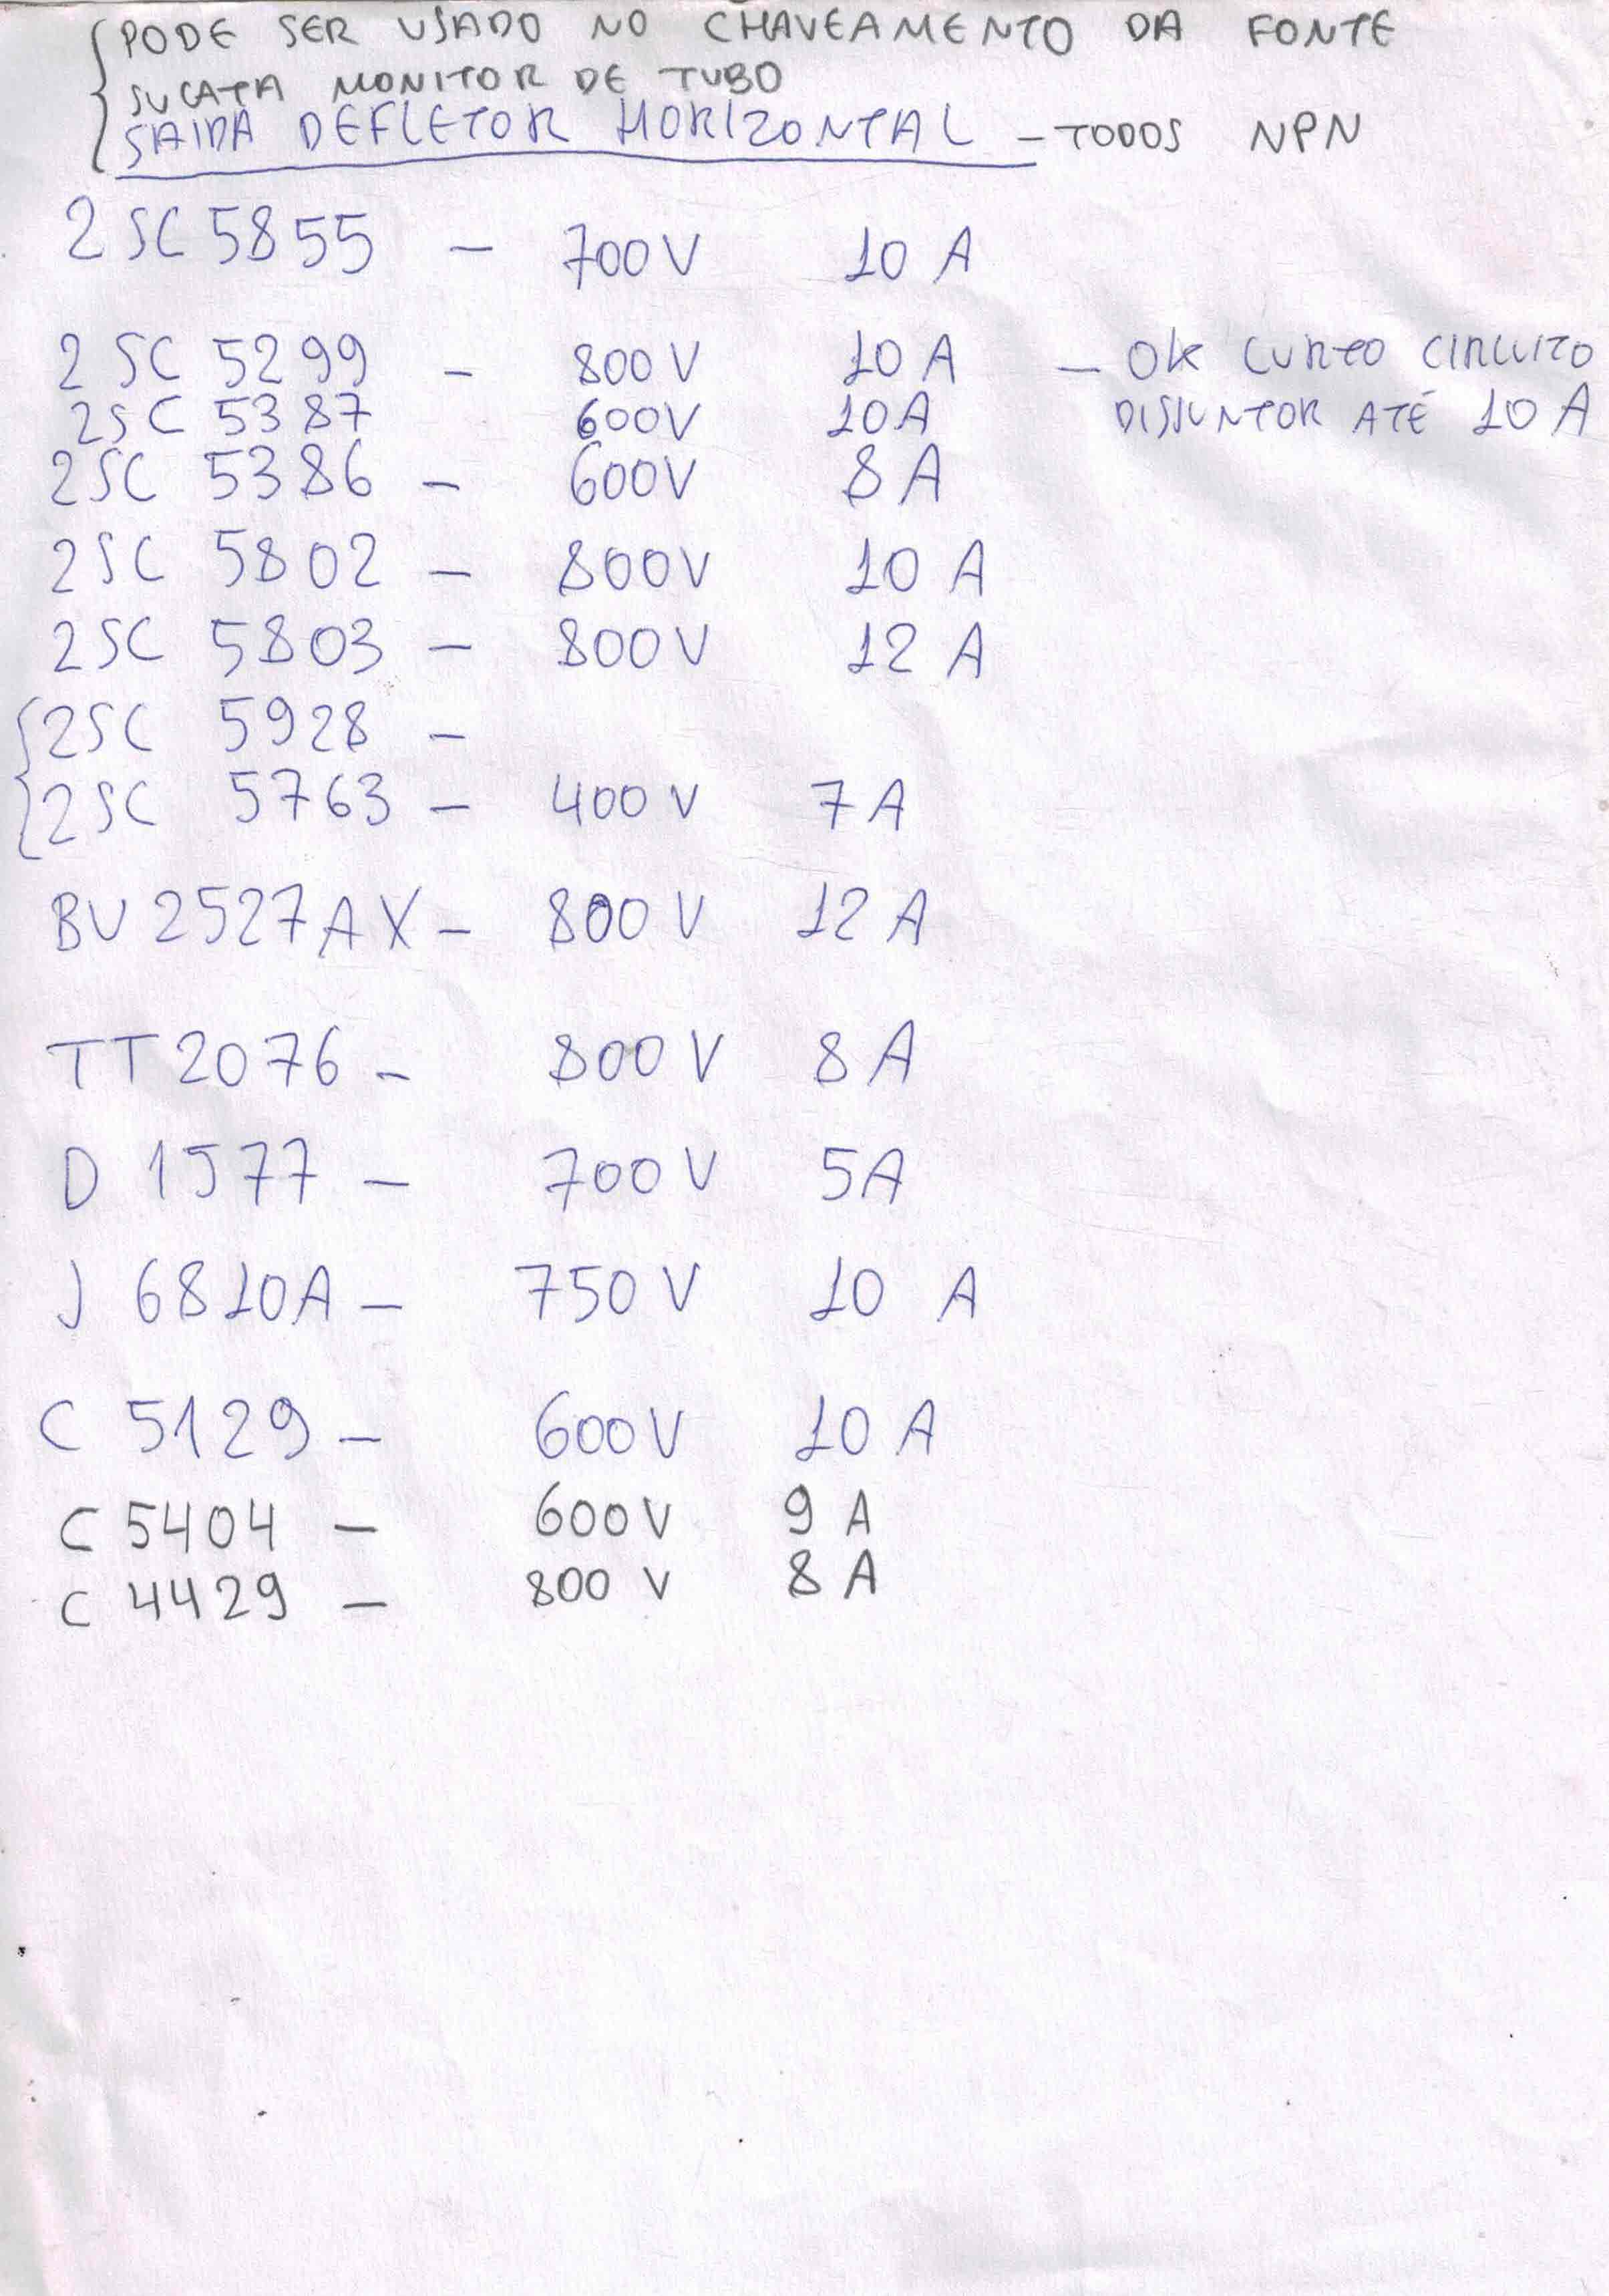 PODE SER USADO NO CHAVEAMENTO DA FONTE
SUCATA MONITOR DE TUBO
SAIDA DEFLETOR HORIZONTAL - TODOS NPN
2SC 5855 - 700V 10 A
2SC 5299 - 800V 10 A - OK CURTO CIRCUITO
2SC 5387 600V 10A DISJUNTOR ATÉ 10 A
2SC 5386 - 600V 8 A
2SC 5802 - 800V 10 A
2SC 5803 - 800V 12 A
2SC 5928 -
2SC 5763 - 400V 7 A
BU 2527AX - 800 V 12 A
TT 2076 - 800 V 8 A
D 1577 - 700 V 5A
J 6810A - 750 V 10 A
C 5129 - 600V 10 A
C 5404 - 600V 9 A
C 4429 - 800 V 8 A